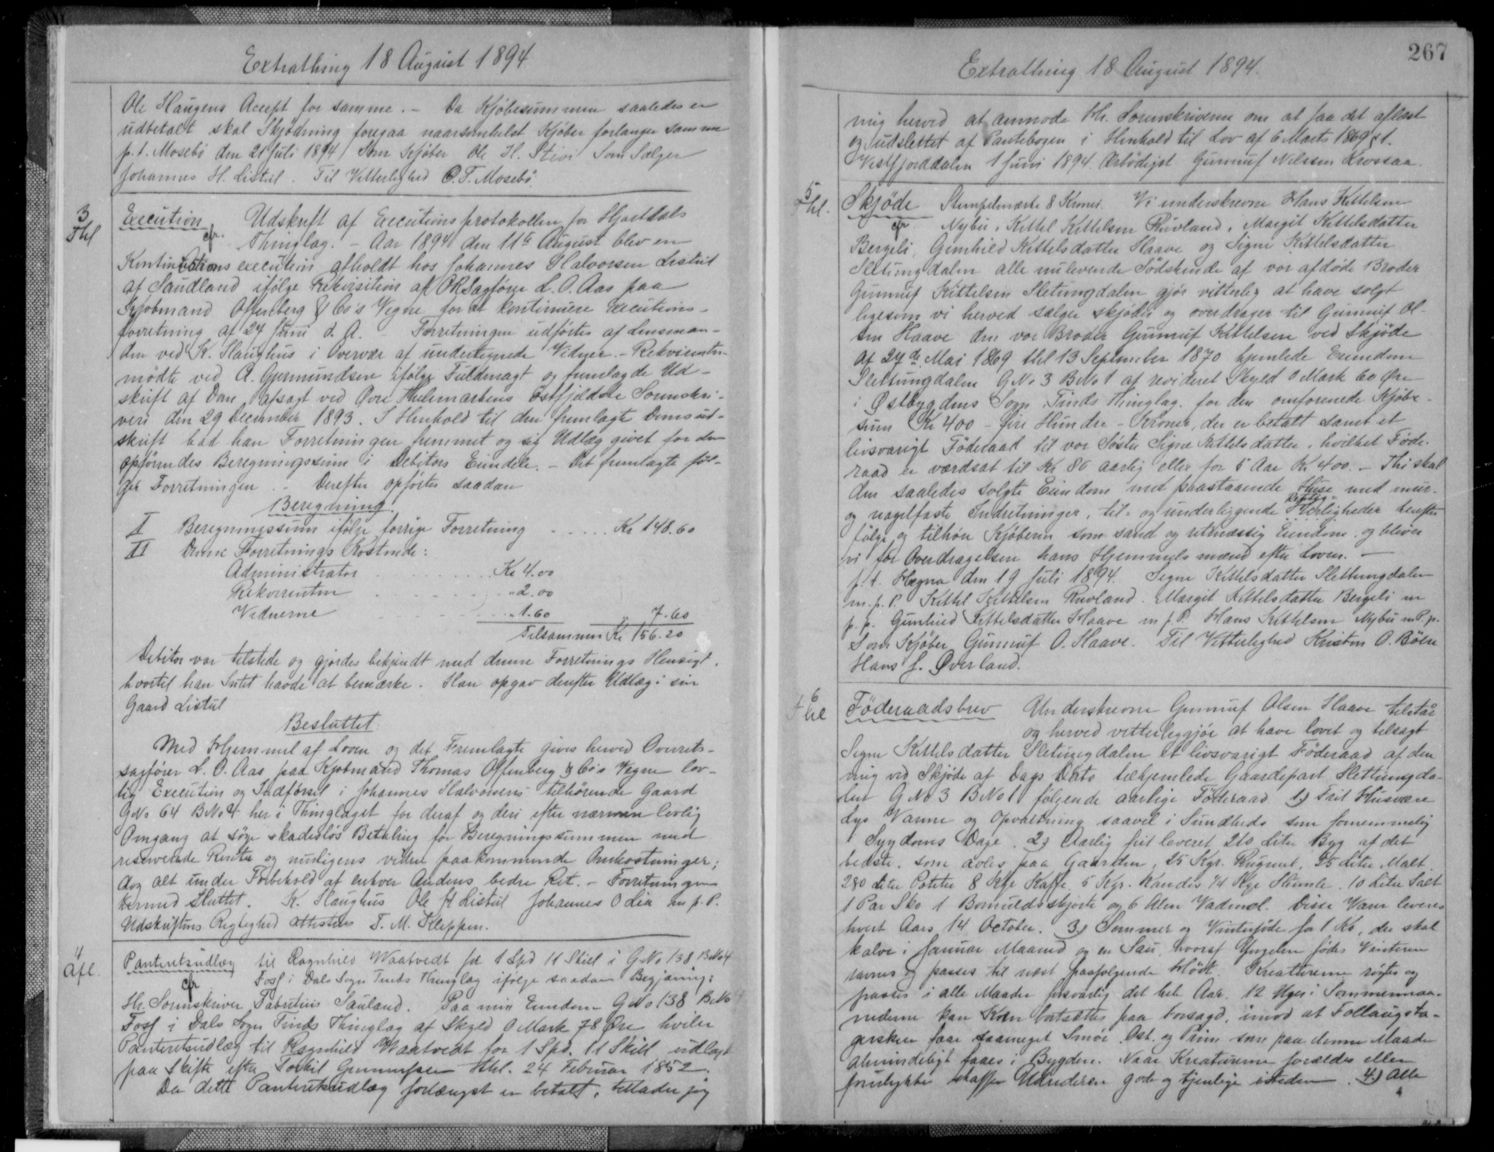 Extrathing 18 August 1894
Ole Haugens Accept for samme. – Da Kjøbesummen saaledes er
udbetalt skal Skjødning foregaa naarsomhelst Kjøber forlanger samme
p.t. Mosebø den 21 Juli 1894 Som Kjøber Ole H. Stivi Som Sælger
Johannes H. Listul. Til Vitterlighed O. T. Mosebø.
3
Thl
Execution Udskrift af Executionsprotokollen for Hjartdals
cfr. Thinglag. – Aar 1894 den 11te August blev en
Kontinuationsexecution afholdt hos Johannes Halvorsen Listul
af Sauland ifølge Rekvisition af ORSagfører L. O. Aas paa
Kjøbmand Offenberg & Co's Vegne for at kontinuere Executions-
forretning af 24 Juni d. A. – Forretningen udførtes af Lensman-
den ved K. Haughus i Overvær af undertegnede Vidner. – Rekvirenten
mødte ved A. Gjermundsen ifølge Fuldmagt og fremlagde Ud-
skrift af Dom, afsagt ved Øvre Thelemarkens Østfjeldske Sorenskri-
veri den 29 December 1893. I Henhold til den fremlagte Domsud-
skrift bad han Forretningen fremmet og sig Udlæg givet for den
opførendes Beregningssum i Debitors Eiendele. – Det fremlagte føl-
ger Forretningen – Derefter opførtes saadan
Beregning:
I Beregningssum ifølge forrige Forretning ..... Kr 148.60
II Denne Forretnings Kostende:
Administrator ........ Kr 4.00
Rekvirenten ........ " 2.00
Vidnerne ........ " 1.60 7.60
Tilsammen Kr 156.20
Debitor var tilstede og gjordes bekjendt med denne Forretnings Hensigt,
hvortil han Intet havde at bemærke. Han opgav derefter Udlæg i sin
Gaard Listul
Besluttet
Med Hjemmel af Loven og det Fremlagte gives herved Overrets-
sagfører L. O. Aas paa Kjøbmand Thomas Offenberg & Co's Vegne lov-
lig Execution og Indførsel i Johannes Halvorsens tilhørende Gaard
GNo 64 BNo 4 her i Thinglaget for deraf og deri efter nærmere lovlig
Omgang at søge skadesløs Betaling for Beregningssummen med
reserverede Renter og muligens videre paakommende Omkostninger;
dog alt under Forbehold af enhver Andens bedre Ret. – Forretningen
dermed sluttet. K. Haughus Ole H Listul Johannes O Lia m. p. P.
Udskriftens Rigtighed attesteres T. M. Kleppen.
4
Afl.
Panteretsudlæg til Ragnhild Waatvedt fd 1 Spd 11 Skill i GNo 138 BNo 4
cfr Foss i Dals Sogn Tinds Thinglag ifølge saadan Begjæring:
Hr. Sorenskriver Fabritius Sauland. Paa min Eiendom GNo 138 BNo 4
Foss i Dals Sogn Tinds Thinglag af Skyld 0 Mark 78 Øre hviler
Panteretsudlæg til Ragnhild Waatvedt for 1 Spd. 11 Skill udlagt
paa Skifte efter Torkil Gunnufsen thl. 24 Februar 1852.
Da dette Panteretsudlæg forlængst er betalt, tillader jeg
267
Extrathing 18 August 1894.
mig herved at anmode Hr. Sorenskriveren om at faa det aflæst
og udslettet af Pantebogen i Henhold til Lov af 6 Marts 1869 § 1.
Vestfjorddalen 1 Juni 1894 Ærbødigst Gunnuf Nilssen Krossaa.
5
Thl.
Skjøde Stempelmærke 8 Kroner. Vi underskrevne Hans Kittelsen
cfr Nybu, Kittel Kittelsen Ruvland, Margit Kittelsdatter
Bergeli, Gunhild Kittelsdatter Haave og Signe Kittelsdatter
Sletungdalen alle nulevende Sødskende af vor afdøde Broder
Gunnuf Kittelsen Sletungdalen gjør vitterlig at have solgt
ligesom vi herved sælger skjøder og overdrager til Gunnuf Ol-
sen Haave den vor Broder Gunnuf Kittelsen ved Skjøde
af 24de Mai 1869 thl 13 September 1870 hjemlede Eiendom
Slettungdalen GNo 3 BNo 1 af revideret Skyld 0 Mark 60 Øre
i Østbygdens Sogn Tinds Thinglag for den omforenede Kjøbe-
sum Kr 400 – fire Hundre – Kroner, der er betalt samt et
livsvarigt Føderaad til vor Søster Signe Kittelsdatter, hvilket Føde-
raad er værdsat til Kr 80 aarlig eller for 5 Aar Kr 400. – Thi skal
den saaledes solgte Eiendom med paastaaende Huse med mur-
og nagelfaste Indretninger, til- og underliggende Herligheder herefter
følge og tilhøre Kjøberen som sand og retmæssig Eiendom og bliver
vi for Overdragelsen hans Hjemmelsmænd efter Loven. –
p. t. Hægna den 19 Juli 1894. Signe Kittelsdatter Slettungdalen
m. p. P. Kittel Kittelsen Ruvland. Margit Kittelsdatter Bergeli m
p. p. Gunhild Kittelsdatter Haave m. p. P. Hans Kittelsen Nybu m. P. p.
Som Kjøber Gunnuf O. Haave. Til Vitterlighed Kristen O. Bøen
Hans J. Øverland.
6
thl
Føderaadsbrev Underskrevne Gunnuf Olsen Haave tilstaar
og herved vitterliggjør at have lovet og tilsagt
Signe Kittelsdatter Sletungdalen et livsvarigt Føderaad af den
mig ved Skjøde af Dags Dato tilhjemlede Gaardepart Slettungda-
len GNo 3 BNo 1 følgende aarlige Føderaad 1) Frit Husvære
Lys Varme og Opvartning saavel i Sundheds som fornemmelig
Sygdoms Dage. 2) Aarlig frit leveret 210 Liter Byg af det
bedste som avles paa Gaarden, 25 Kgr. Rugmel, 35 Liter Malt
280 Liter Poteter 8 Kgr Kaffe 5 Kgr. Kandis 1/4 Kgr Humle 10 Liter Salt
1 Par Sko 1 Bomuldsskjorte og 6 Alen Vadmel. Disse Varer leveres
hvert Aars 14 October. 3) Sommer og Vinterføde for 1 Ko, der skal
kalve i Januar Maaned og en Sau, hvoraf Yngelen fødes Vinteren
over og passes til næst paafølgende Høst. Kreaturene røgtes og
passes i alle Maader forsvarlig det hele Aar. 12 Uger i Sommermaa-
nederne kan Koen bortsættes paa Forsagd, imod at Føllaugsta-
gersken faar saameget Smør Ost og Prim som paa denne Maade
almindeligt faaes i Bygden. Naar Kreaturerne forældes eller
forulykke skaffer Udrederen gode og tjenlige isteden. 4) Alle